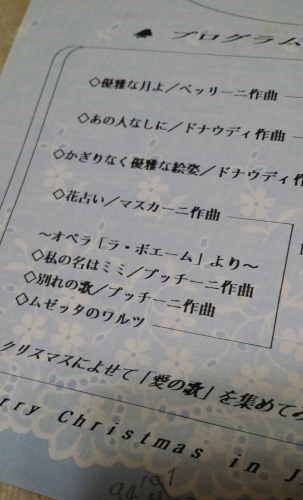 ♠ プログラム
◇優雅な月よ／ベッリーニ作曲
◇あの人なしに／ドナウディ作曲
◇かぎりなく優雅な絵姿／ドナウディ作曲
◇花占い／マスカーニ作曲
～オペラ「ラ・ボエーム」より～
◇私の名はミミ／プッチーニ作曲
◇別れの歌／プッチーニ作曲
◇ムゼッタのワルツ
クリスマスによせて「愛の歌」を集めてみ
rry Christmas in J